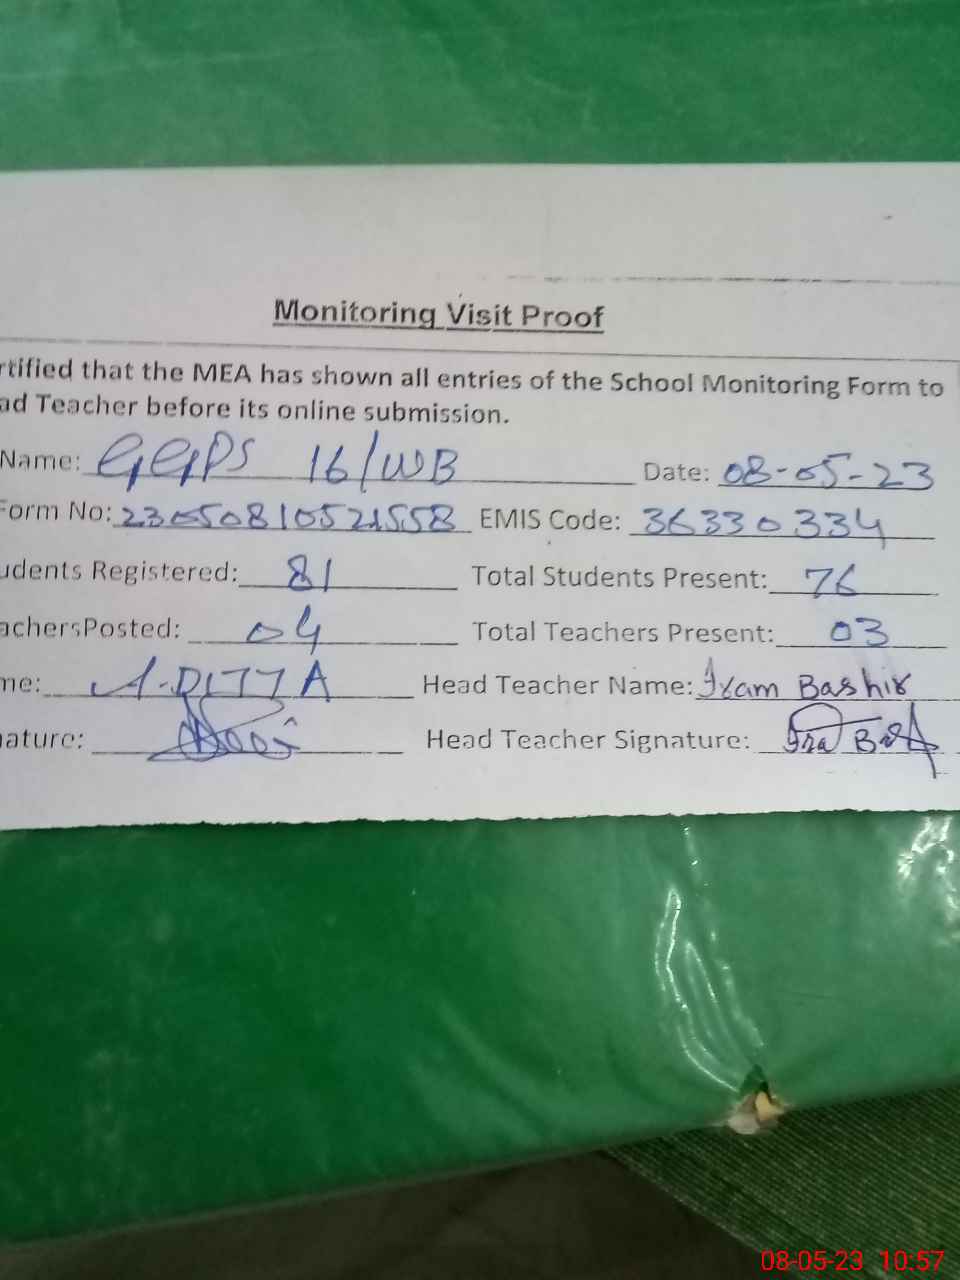 Monitoring Visit Proof
rtified that the MEA has shown all entries of the School Monitoring Form to
ad Teacher before its online submission.
Name: GGPS 16/WB Date: 08-05-23
Form No: 23050810521558 EMIS Code: 36330334
udents Registered: 81 Total Students Present: 76
achersPosted: 04 Total Teachers Present: 03
me: A-DITTA Head Teacher Name: Iram Bashir
ature: Head Teacher Signature:
08-05-23 10:57